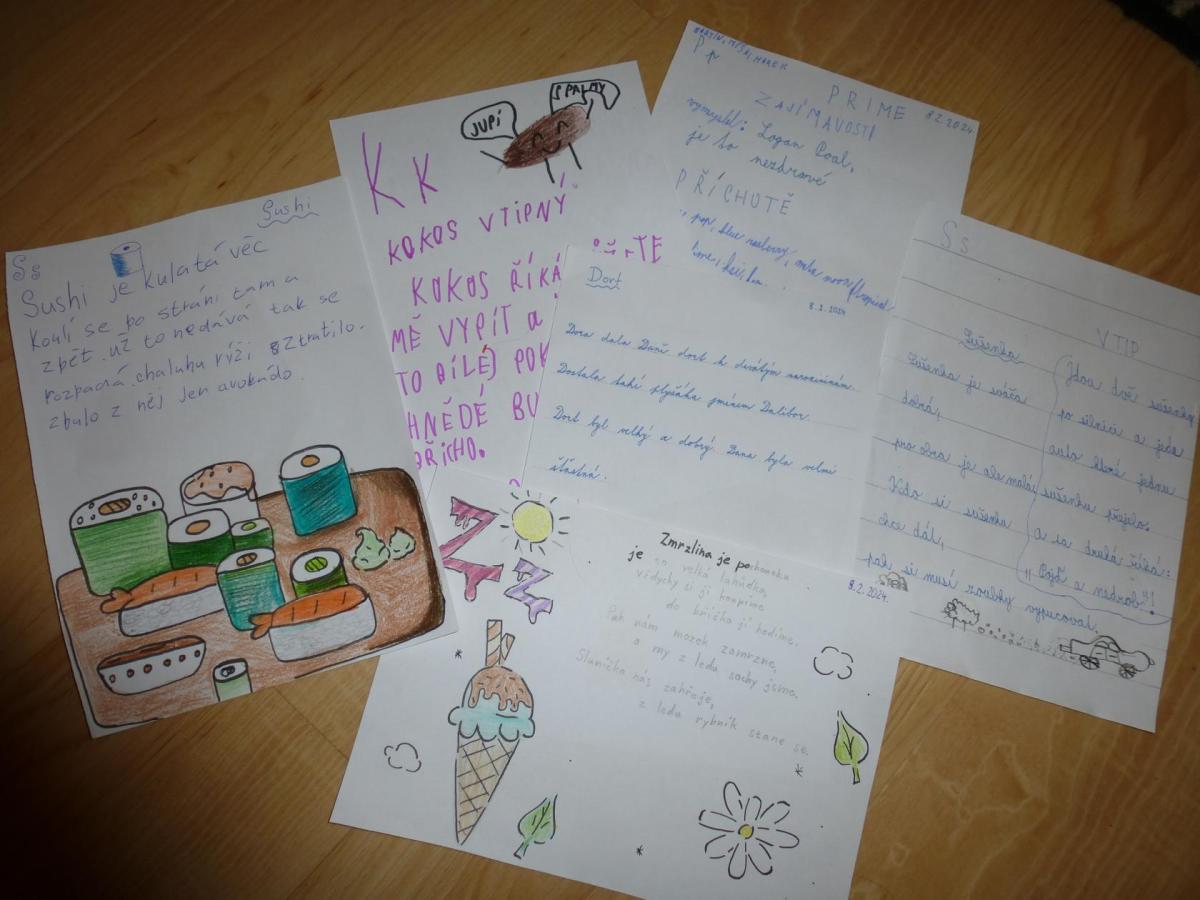 Sushi
Ss
Sushi je kulatá věc
Koulí se po stráni tam a
zpět. už to nedává tak se
rozpadá. chaluhu rýži ztratilo.
zbulo z něj jen avokádo.
K k
JUPÍ
S PALMY
KOKOS VTIPNÝ
KOKOS ŘÍKÁ
MĚ VYPÍT a
TO BÍLÉ) POK
HNĚDÉ BU
OŘÍCHO.
MARTIN, MÍŠA, MAREK
P p
PRIME
8.2.2024
ZAJÍMAVOSTI
vymyslel: Logan Poal.
je to nezdravé
PŘÍCHUTĚ
pop, blue
lime,
8.2.2024
Dort
Dora dala Daně dort k devátým narozeninám.
Dostala také plyšáka jménem Dalibor.
Dort byl velký a dobrý. Dana byla velmi
šťastná.
Z z
Zmrzlina je pochoutka
je to velká lahůdka,
vždycky si ji koupíme
do bříška ji hodíme.
Pak nám mozek zamrzne,
a my z ledu sochy jsme.
Sluníčko nás zahřeje,
z ledu rybník stane se.
8.2.2024.
Ss
Sušenka
Sušenka je sváča
dobrá,
pro bobra je ale malá
Kdo si sušenku
chce dát,
pak si musí zoubky vypucovat.
VTIP
Jdou dvě sušenky
po silnici a jede
auto které jednu
sušenku přejelo.
a ta druhá říká:
"Pojď a nedrob"!